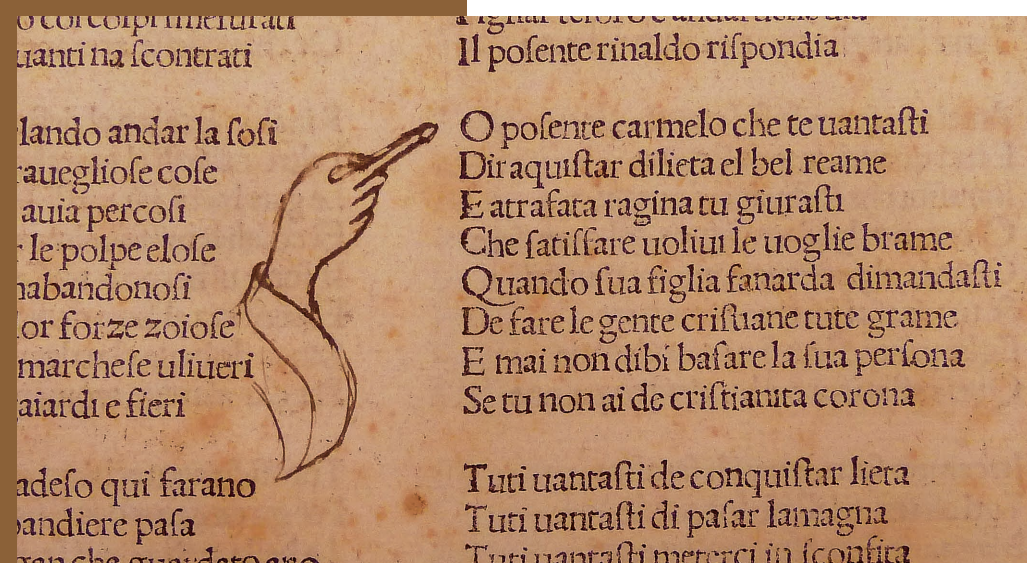 uanti na ſcontrati
lando andar la ſoſi
rauegliоſe coſe
auia percoſi
le polpe eloſe
nabandonoſi
lor forze zoioſe
marcheſe uliueri
aiardi e fieri
adeſo qui farano
bandiere paſa
Il poſente rinaldo riſpondia
O poſente carmelo che te uantaſti
Diraquiſtar dilieta el bel reame
E atrafata ragina tu giuraſti
Che ſatiſfare uoliui le uoglie brame
Quando ſua figlia fanarda dimandaſti
De fare le gente criſtiane tute grame
E mai non dibi baſare la ſua perſona
Se tu non ai de criſtianita corona
Tuti uantaſti de conquiſtar lieta
Tuti uantaſti di paſar lamagna
Tuti uantaſti meterci in ſconfita